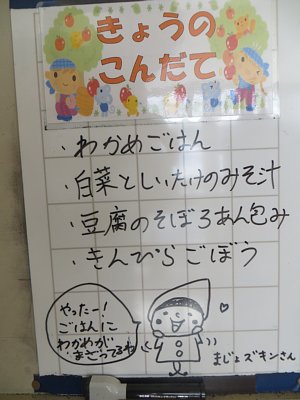 きょうの
こんだて
・わかめごはん
・白菜としいたけのみそ汁
・豆腐のそぼろあん包み
・きんぴらごぼう
やったー!
ごはんに
わかめが
まざってるね
まじょズキンさん